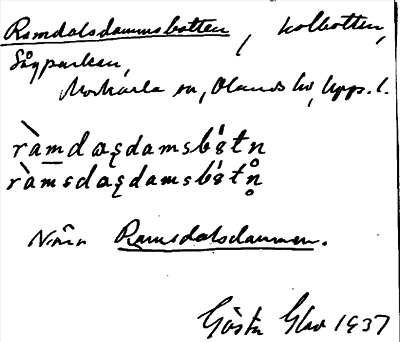 Ramdalsdammsbotten, kolbotten,
Sågparken,
Morkarla sn, Olands hd, Upps. l.
ràmdaʂdamsbótn̥
ràmsdaʂdamsbótn̥
Nära Ramsdalsdammen.
Gösta 1937